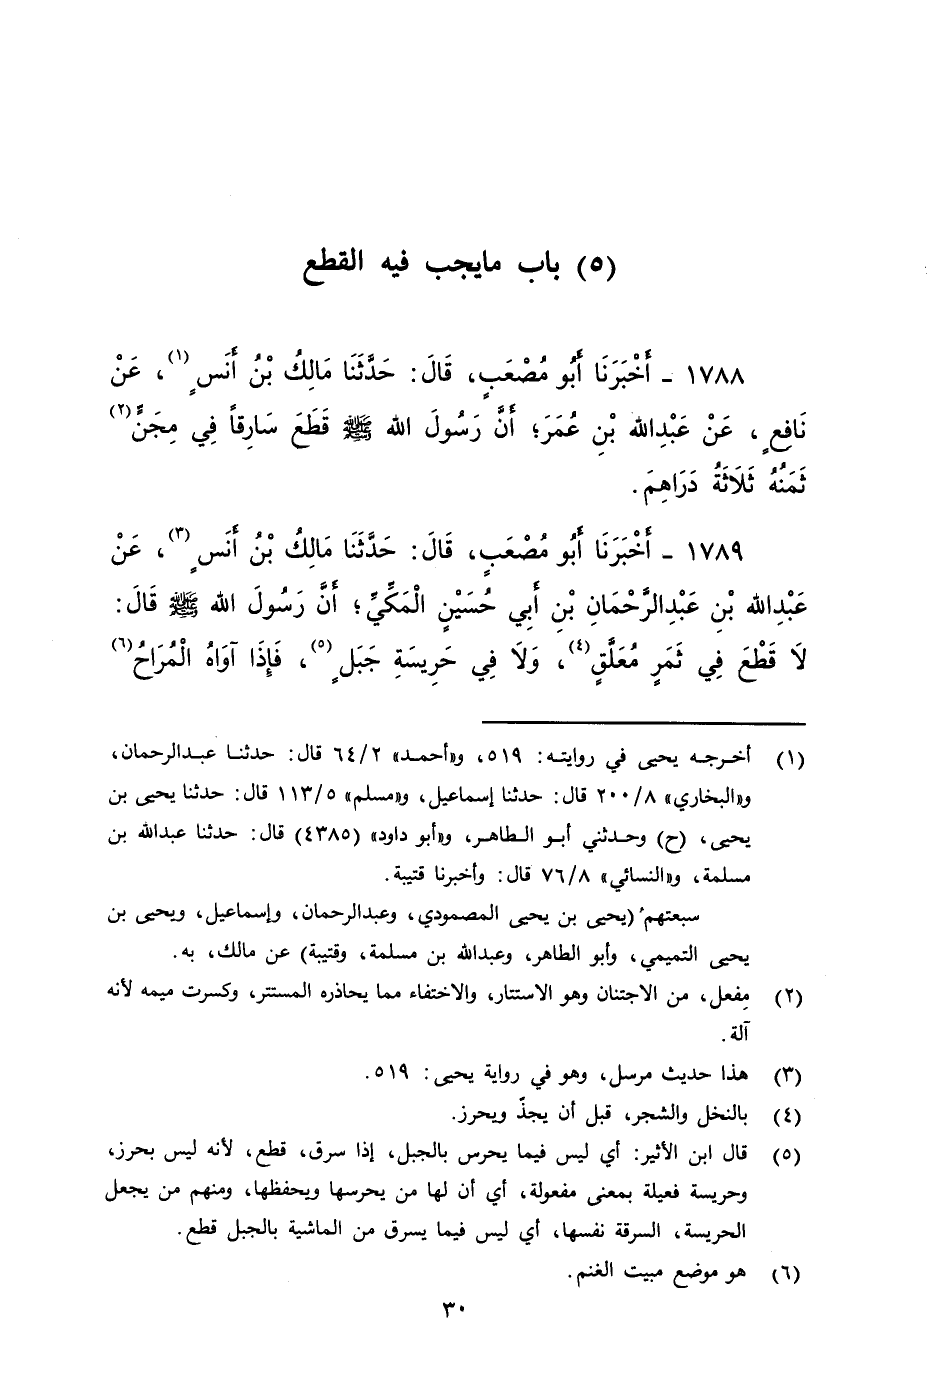 (٥) باب مايجب فيه القطع
١٧٨٨ - أَخْبَرَنَا أَبُو مُصْعَبٍ، قَالَ: حَدَّثَنَا مَالِكُ بْنُ أَنَسٍ (١)، عَنْ
نَافِعٍ، عَنْ عَبْدِالله بْنِ عُمَرَ؛ أَنَّ رَسُولَ الله ﷺ قَطَعَ سَارِقاً فِي مِجَنٍّ (٢)
ثَمَنُهُ ثَلاَثَةُ دَرَاهِمَ.
١٧٨٩ - أَخْبَرَنَا أَبُو مُصْعَبٍ، قَالَ: حَدَّثَنَا مَالِكُ بْنُ أَنَسٍ (٣)، عَنْ
عَبْدِالله بْنِ عَبْدِالرَّحْمَانِ بْنِ أَبِي حُسَيْنٍ الْمَكِّيِّ؛ أَنَّ رَسُولَ الله ﷺ قَالَ:
لَا قَطْعَ فِي ثَمَرٍ مُعَلَّقٍ (٤)، وَلَا فِي حَرِيسَةِ جَبَلٍ (٥)، فَإِذَا آوَاهُ الْمُرَاحُ (٦)
(١) أخرجه يحيى في روايته: ٥١٩، و«أحمد» ٦٤/٢ قال: حدثنا عبدالرحمان،
و«البخاري» ٢٠٠/٨ قال: حدثنا إسماعيل، و«مسلم» ١١٣/٥ قال: حدثنا يحيى بن
يحيى، (ح) وحدثني أبو الطاهر، و«أبو داود» (٤٣٨٥) قال: حدثنا عبدالله بن
مسلمة، و«النسائي» ٧٦/٨ قال: وأخبرنا قتيبة.
سبعتهم (يحيى بن يحيى المصمودي، وعبدالرحمان، وإسماعيل، ويحيى بن
يحيى التميمي، وأبو الطاهر، وعبدالله بن مسلمة، وقتيبة) عن مالك، به.
(٢) مِفعل، من الاجتنان وهو الاستتار، والاختفاء مما يحاذره المستتر، وكسرت ميمه لأنه
آلة.
(٣) هذا حديث مرسل، وهو في رواية يحيى: ٥١٩.
(٤) بالنخل والشجر، قبل أن يجذّ ويحرز.
(٥) قال ابن الأثير: أي ليس فيما يحرس بالجبل، إذا سرق، قطع، لأنه ليس بحرز،
وحريسة فعيلة بمعنى مفعولة، أي أن لها من يحرسها ويحفظها، ومنهم من يجعل
الحريسة، السرقة نفسها، أي ليس فيما يسرق من الماشية بالجبل قطع.
(٦) هو موضع مبيت الغنم.
٣٠